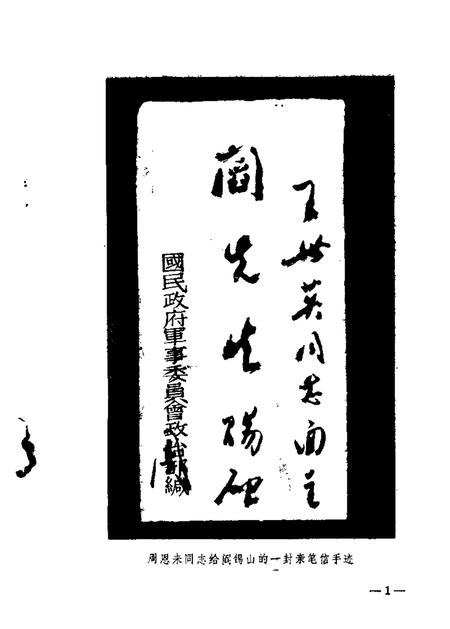 王世英同志面呈
閻先生
國民政府軍事委員會政治部緘
周恩来同志给阎锡山的一封亲笔信手迹
—1—